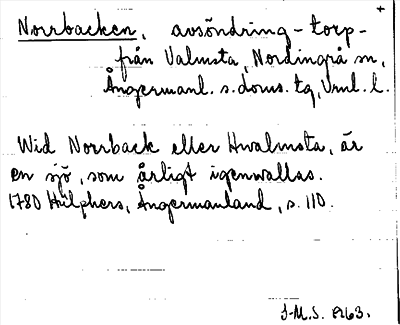 +
Norrbacken, avsöndring - torp -
från Valmsta, Nordingrå sn,
Ångermanl. s. doms. tg, Vrnl. l.
Wid Norrback eller Hwalmsta, är
en sjö, som årligt igenwallas.
1780 Hülphers, Ångermanland, s. 110.
J-M.S. 1963.